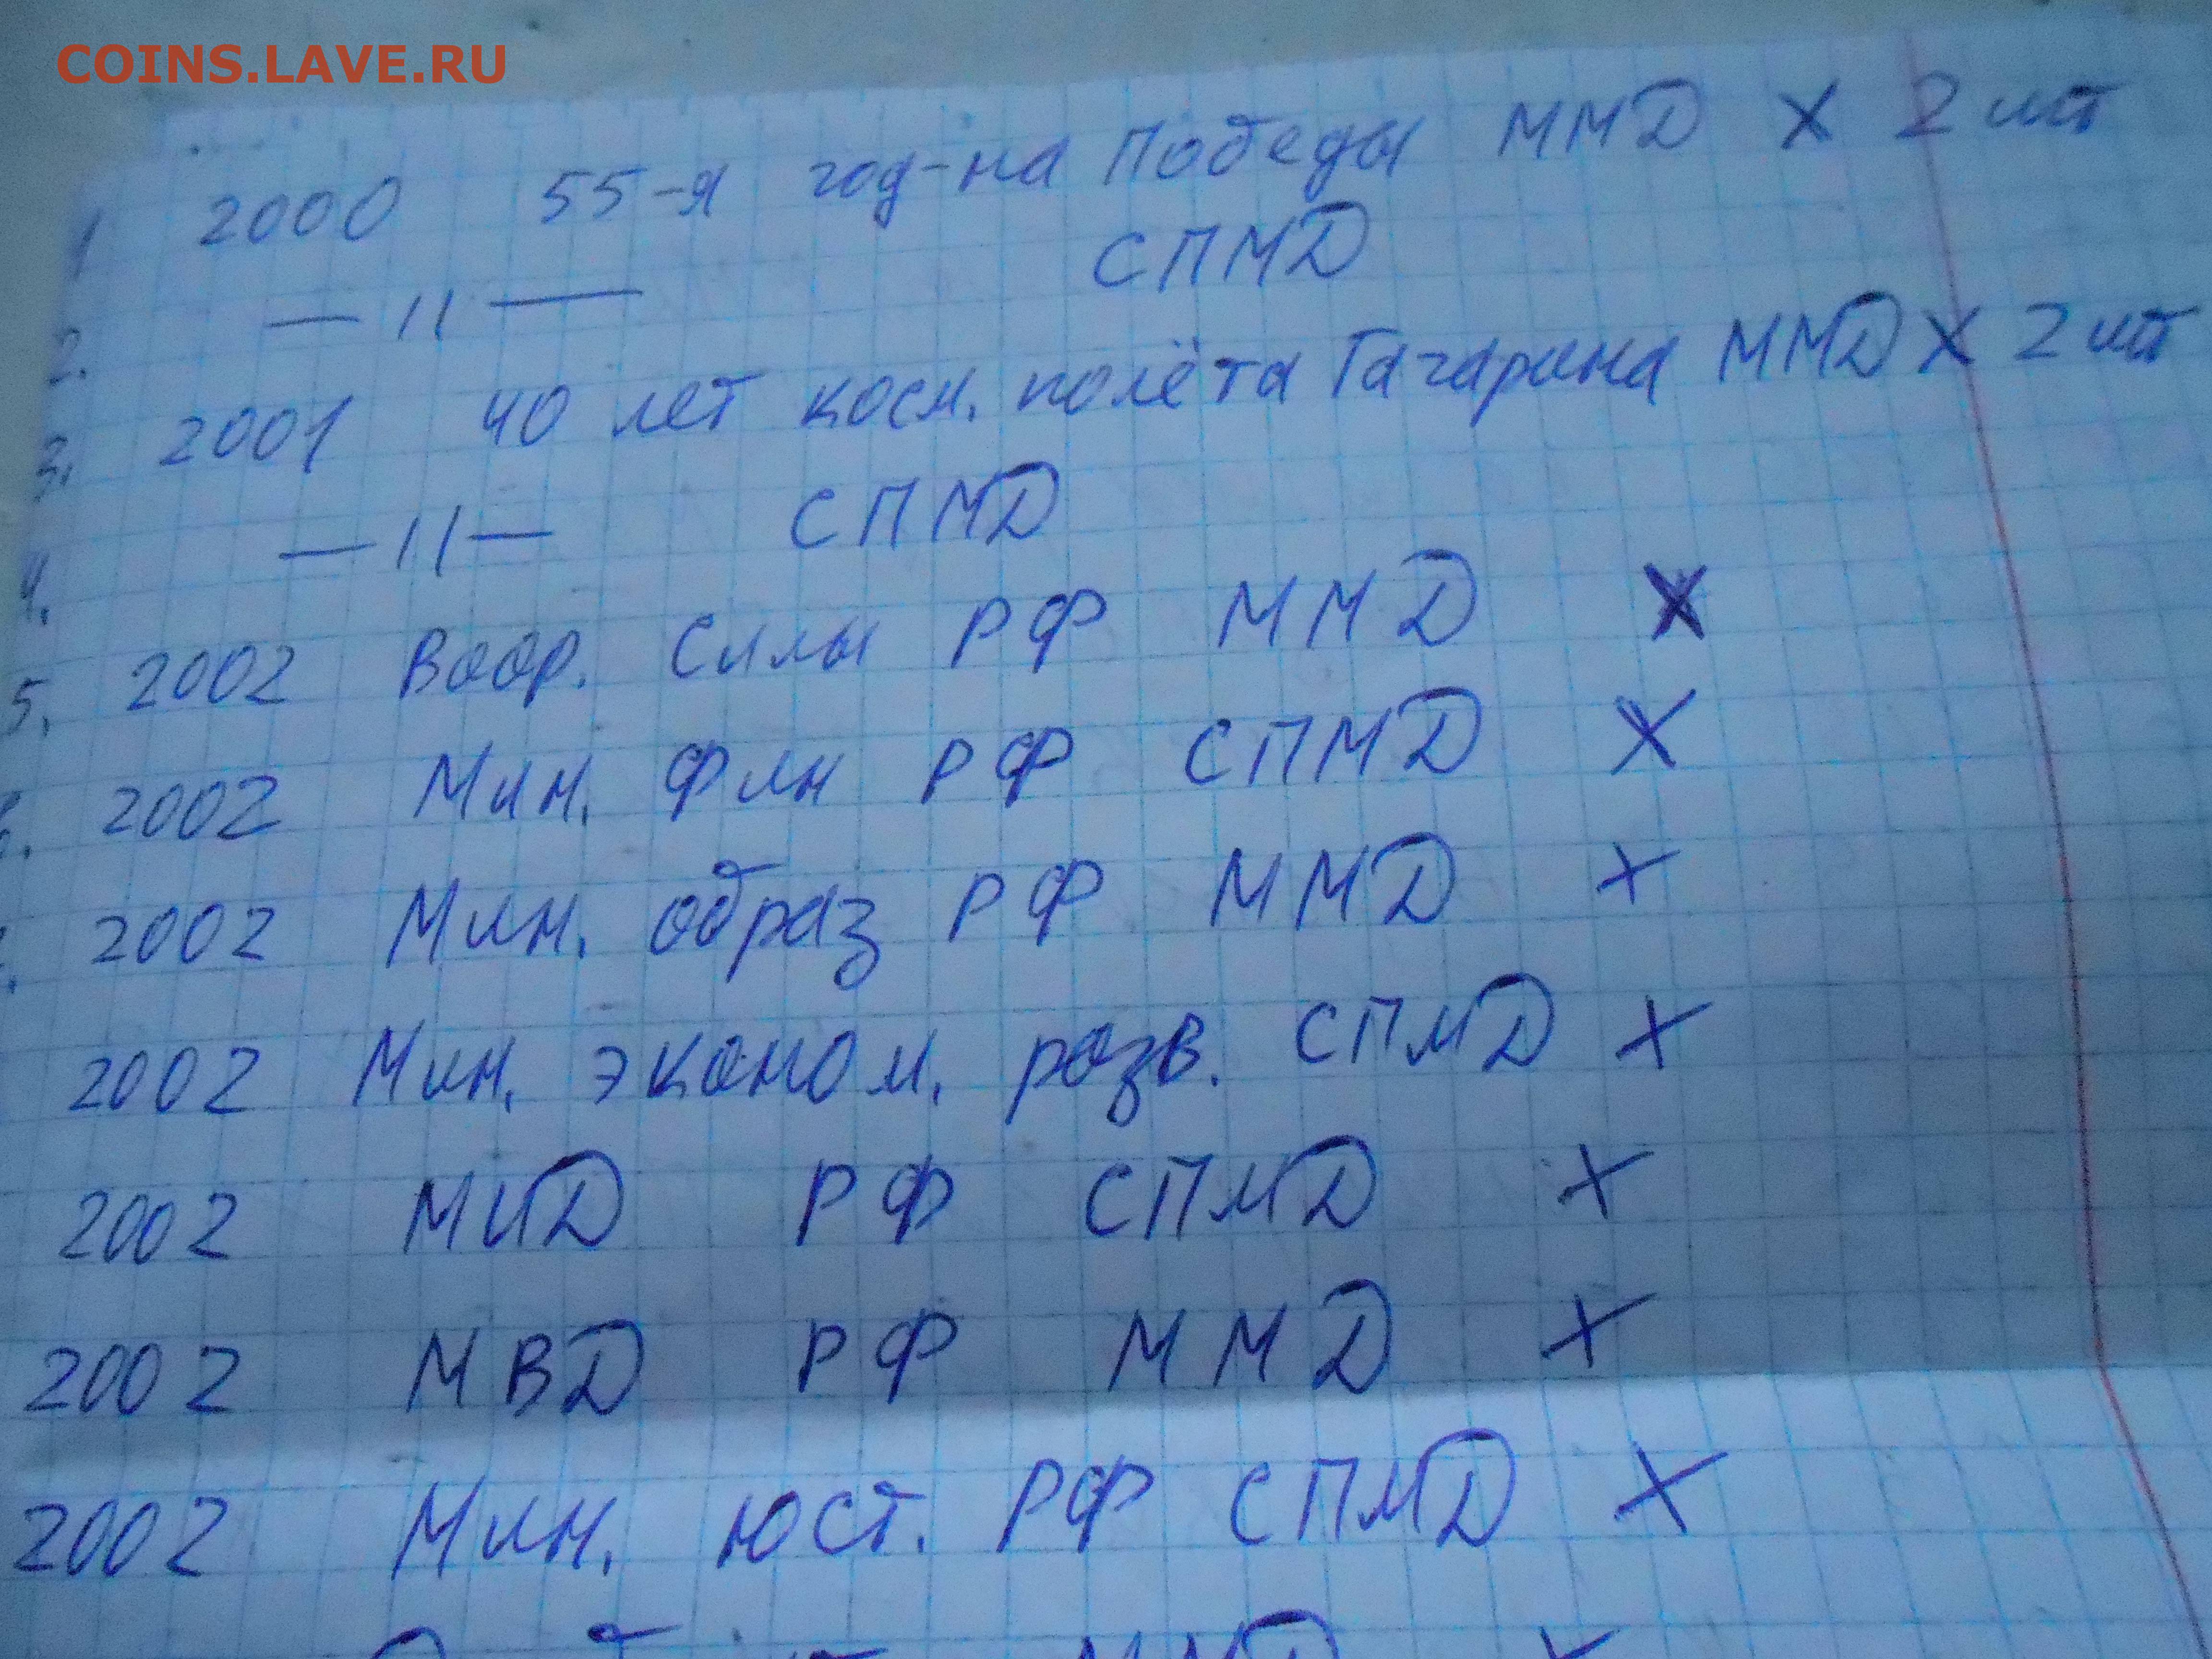 COINS.LAVE.RU
1 2000 55-я год-на Победы ММД X 2 шт
2. — 11 — СПМД
3. 2001 40 лет косм. полёта Гагарина ММД X 2 шт
4. — 11 — СПМД
5. 2002 Воор. Силы РФ ММД X
2002 Мин. Фин РФ СПМД X
2002 Мин. образ РФ ММД X
2002 Мин. эконом. разв. СПМД X
2002 МИД РФ СПМД X
2002 МВД РФ ММД X
2002 Мин. юст. РФ СПМД X